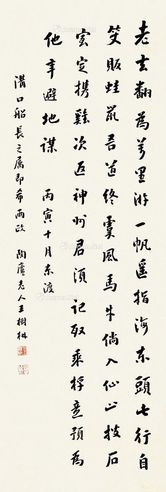 老去翻為萬里游一帆遙指海東頭七行自
笑販蛙氓吾道終虞風馬牛倘入仙山披石
室定攜雞次返神州君須記取乘桴意預為
他年避地謀
丙寅十月東渡
溝口船長之屬即希兩政
陶廬老人王樹枏